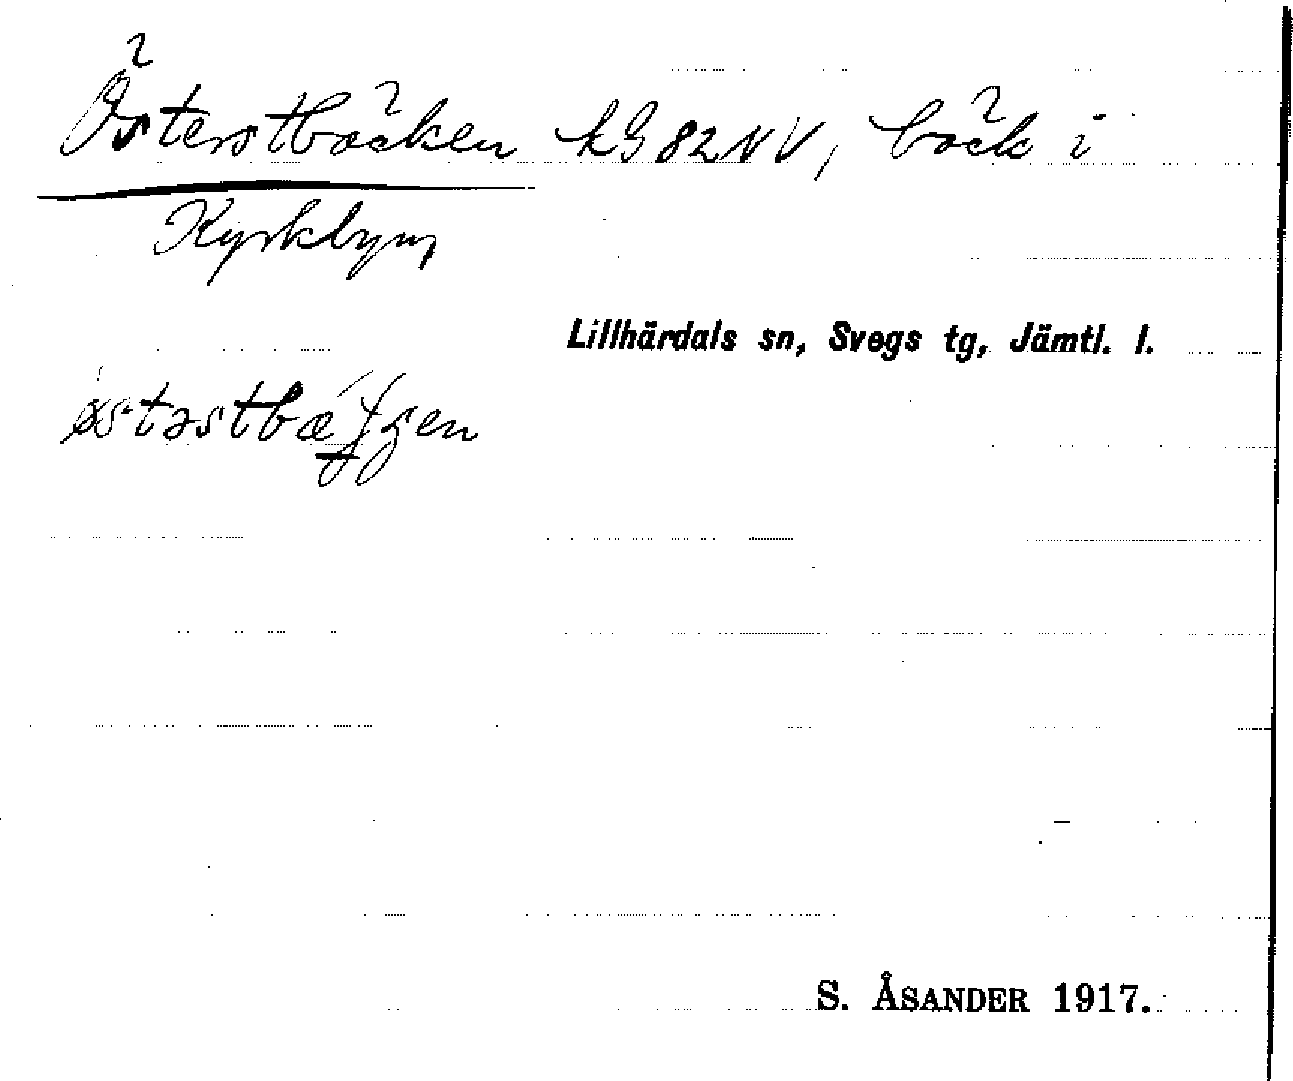 Österstbäcken kG 82 NV, bäck i
Kyrkbyn,
Lillhärdals sn, Svegs tg, Jämtl. l.
S. ÅSANDER 1917.